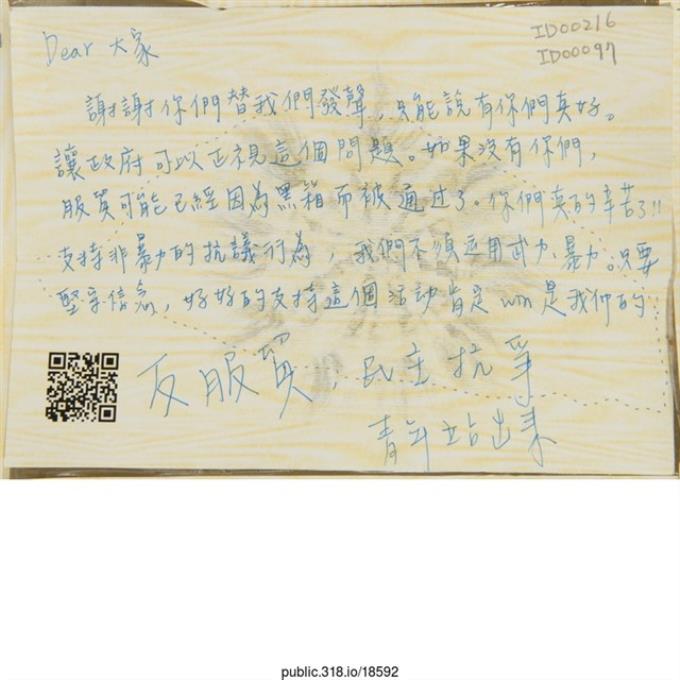 ID00216
ID00097
Dear 大家
謝謝你們替我們發聲，只能說有你們真好。
讓政府可以正視這個問題。如果沒有你們，
服貿可能已經因為黑箱而被通过了。你們真的辛苦了!!
支持非暴力的抗議行為，我們不須运用武力、暴力。只要
堅守信念，好好的支持這個活动肯定 win 是我們的
反服貿，民主抗爭
青年站出來
public.318.io/18592